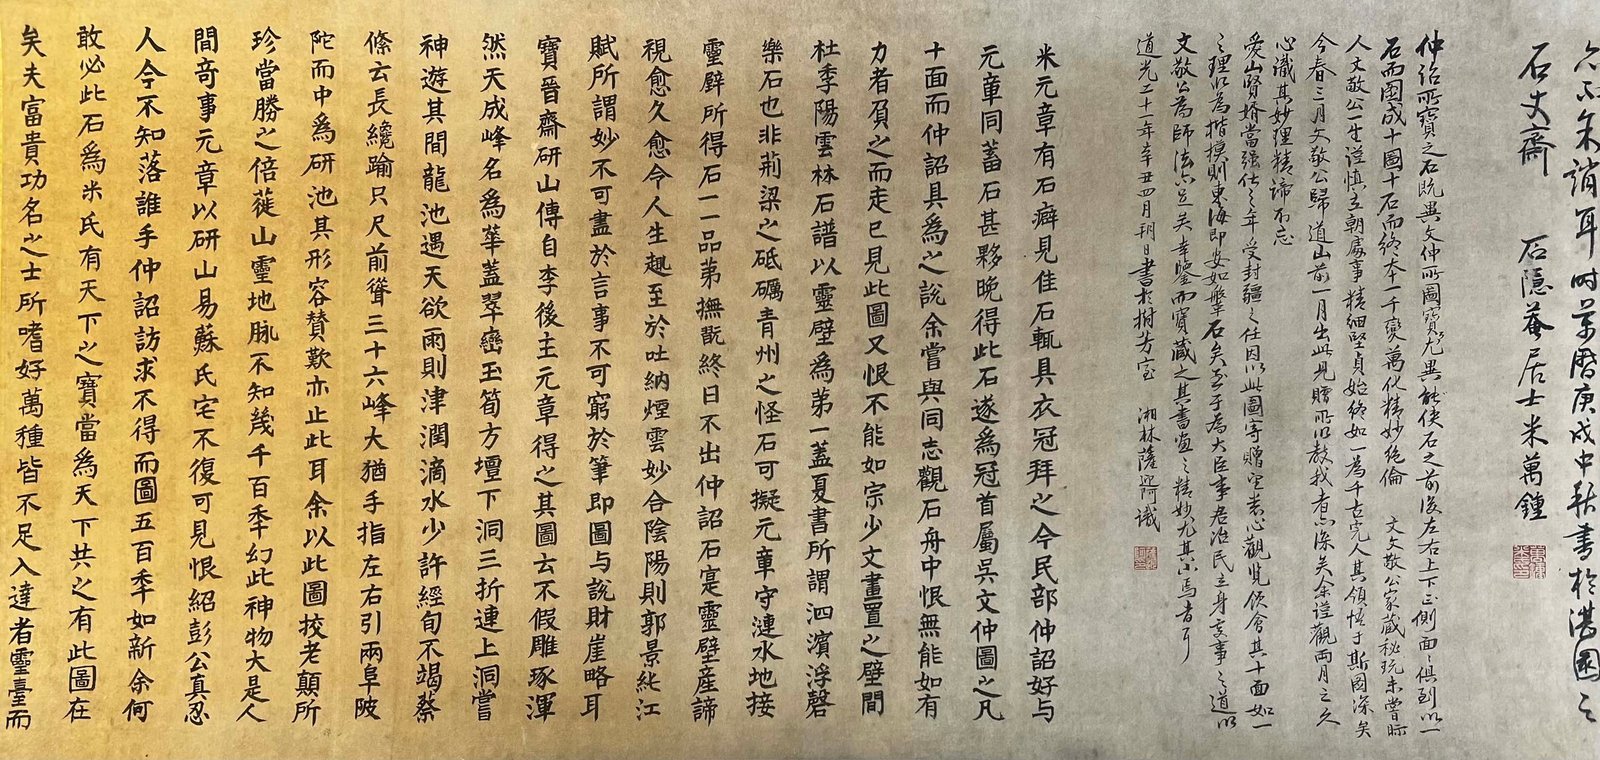 亦不朱誚耳時萬曆庚戌中秋書於湛園之
石丈齋　石隱菴居士米萬鍾
仲詔所寶之石既異文仲所圖寶尤異能使石之前後左右上下正側面面俱到以一
石而圖成十圖十石而終本一千變萬化精妙絕倫　文文敬公家藏秘玩未嘗眎
人文敬公一生謹慎立朝處事精細堅貞始終如一為千古完人其領悟于斯圖深矣
今春三月文敬公歸道山前一月出此見贈所以教我者深矣余謹觀兩月之久
心識其妙理精諦不忘
愛山賢婿當強仕之年受封疆之任因以此圖寄贈望悉心觀覽領會其十面如一
之理以為楷模則東海即安如磐石矣至于為大臣事君治民立身交事之道以
文敬公為師法亦足矣幸鑒而寶藏之其書畫之精妙尤其小焉者耳
道光二十一年辛丑四月朔日書於樹芳室　湘林薩迎阿識
米元章有石癖見佳石輒具衣冠拜之今民部仲詔好與
元章同蓄石甚夥晚得此石遂為冠首屬吳文仲圖之凡
十面而仲詔具為之說余嘗與同志觀石舟中恨無能如有
力者負之而走已見此圖又恨不能如宗少文畫置之壁間
杜季陽雲林石譜以靈壁為第一蓋夏書所謂泗濱浮磬
樂石也非荊梁之砥礪青州之怪石可擬元章守漣水地接
靈壁所得石一一品第撫翫終日不出仲詔石寔靈壁產諦
視愈久愈令人生趣至於吐納煙雲妙合陰陽則郭景純江
賦所謂妙不可盡於言事不可窮於筆即圖与說財崖略耳
寶晉齋研山傳自李後主元章得之其圖云不假雕琢渾
然天成峰名為華蓋翠巒玉筍方壇下洞三折連上洞嘗
神遊其間龍池遇天欲雨則津潤滴水少許經旬不竭蔡
絛云長纔踰尺尺前聳三十六峰大猶手指左右引兩阜陂
陀而中為研池其形容贊歎亦止此耳余以此圖挍老顛所
珍當勝之倍蓰山靈地脉不知幾千百秊幻此神物大是人
間奇事元章以研山易蘇氏宅不復可見恨紹彭公真忍
人今不知落誰手仲詔訪求不得而圖五百季如新余何
敢必此石為米氏有天下之寶當為天下共之有此圖在
矣夫富貴功名之士所嗜好萬種皆不足入達者靈臺而